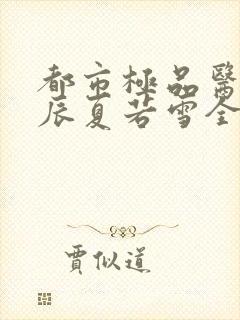 都市極品醫
辰夏若雪全
賈似道